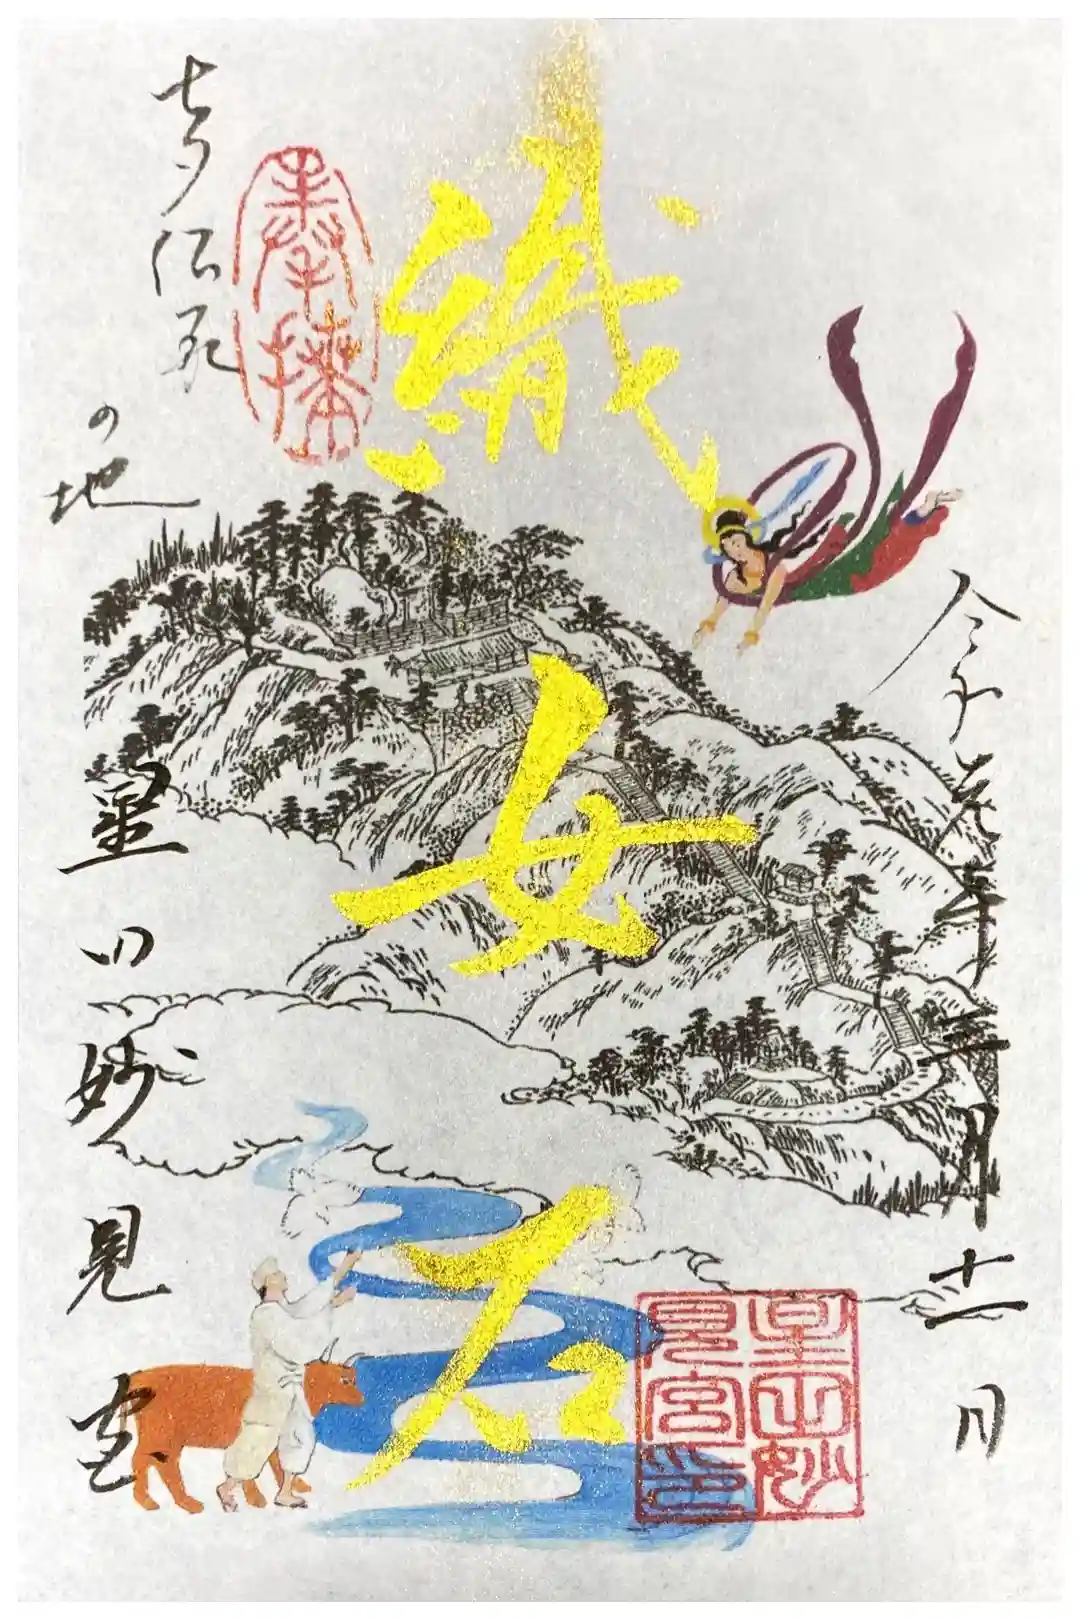 令和元年五月十一日
織女石
奉拝
七夕伝承
の地
星田妙見宮
星田妙
見宮印